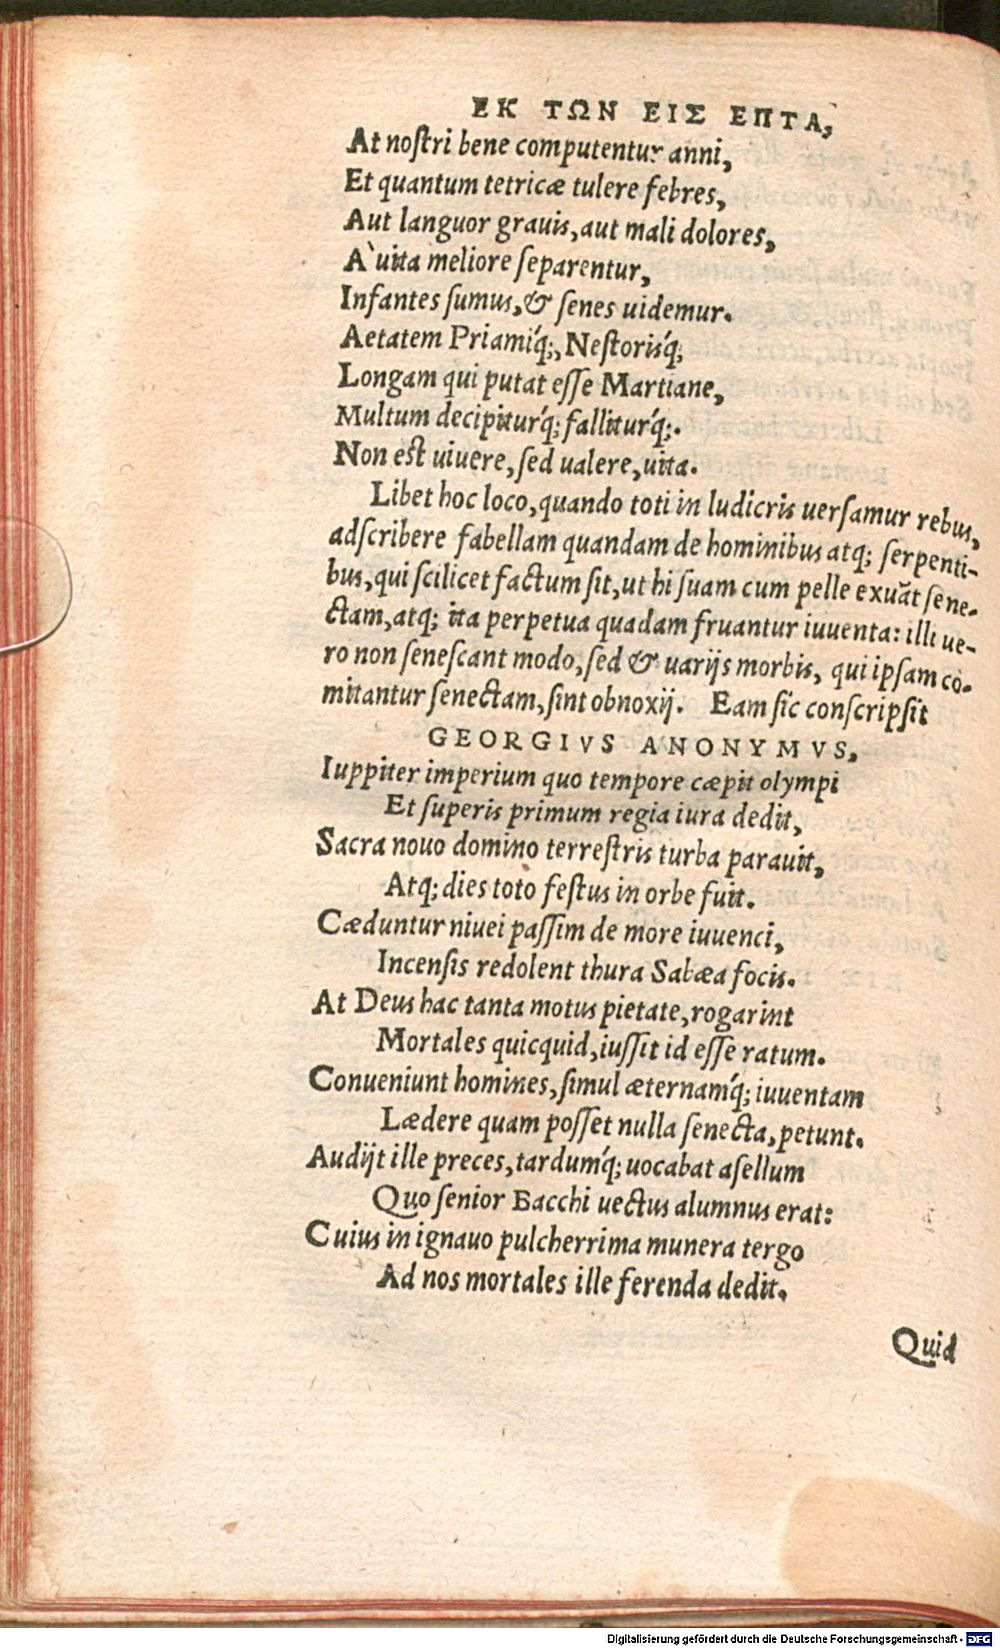 ΕΚ ΤΩΝ ΕΙΣ ΕΠΤΑ,
At noſtri bene computentur anni,
Et quantum tetricæ tulere febres,
Aut languor grauis, aut mali dolores,
A` uita meliore ſeparentur,
Infantes ſumus, & ſenes uidemur.
Aetatem Priamiq́;, Neſtorisq́;
Longam qui putat eſſe Martiane,
Multum decipiturq́; falliturq́;.
Non eſt uiuere, ſed ualere, uita.
Libet hoc loco, quando toti in ludicris uerſamur rebus,
adſcribere fabellam quandam de hominibus atq; ſerpenti-
bus, qui ſcilicet factum ſit, ut hi ſuam cum pelle exuāt ſene-
ctam, atq; ita perpetua quadam fruantur iuuenta: illi ue-
ro non ſeneſcant modo, ſed & uarijs morbis, qui ipſam cō-
mitantur ſenectam, ſint obnoxij. Eam ſic conſcripſit
GEORGIVS ANONYMVS,
Iuppiter imperium quo tempore cæpit olympi
Et ſuperis primum regia iura dedit,
Sacra nouo domino terreſtris turba parauit,
Atq; dies toto feſtus in orbe fuit.
Cæduntur niuei paſſim de more iuuenci,
Incenſis redolent thura Sabæa focis.
At Deus hac tanta motus pietate, rogarint
Mortales quicquid, iuſſit id eſſe ratum.
Conueniunt homines, ſimul æternamq́; iuuentam
Lædere quam poſſet nulla ſenecta, petunt.
Audijt ille preces, tardumq́; uocabat aſellum
Quo ſenior Bacchi uectus alumnus erat:
Cuius in ignauo pulcherrima munera tergo
Ad nos mortales ille ferenda dedit.
Quid
Digitalisierung gefördert durch die Deutsche Forschungsgemeinschaft - DFG